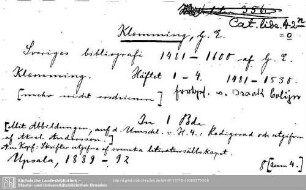 Cat. libr. A 272
Klemming, G. E.
Sveriges bibliografi 1481-1600 af G. E.
Klemming. Häftet 1-4. 1481-1530.
[mehr nicht erschienen] fortges. v. Isaak Collijn
In 1 Bde
[Mit Abbildungen, auf d. Umschl. H. 4.: Redigerad och utgifven
af Aksel Andersson]
Am Kopf: Skrifter utgifna af svenska literatursällskapet.
Upsala, 1889-92 8
Sächsische Landesbibliothek -
Staats- und Universitätsbibliothek Dresden